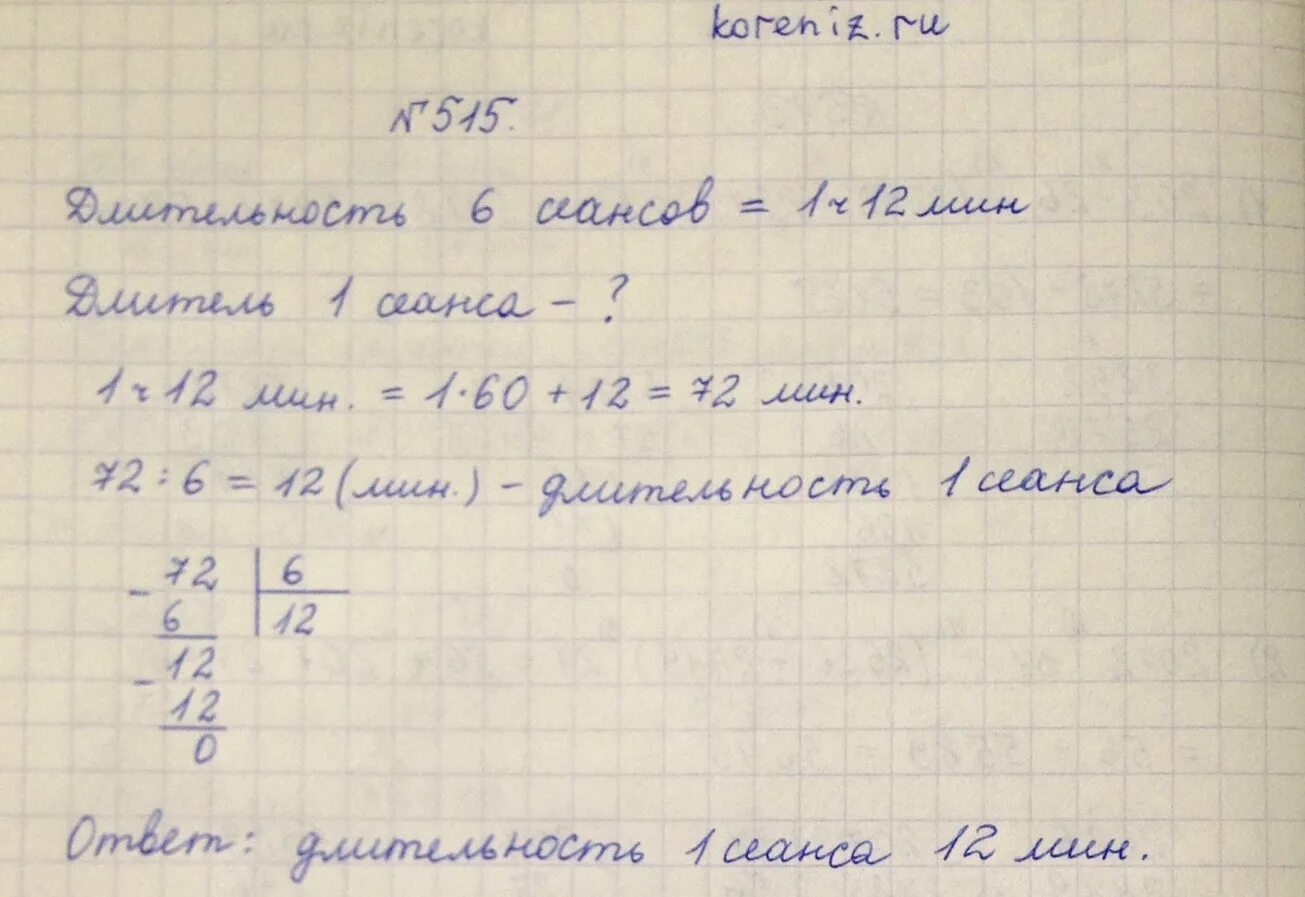 koreniz.ru
№515.
Длительность 6 сеансов = 1ч 12 мин
Длитель 1 сеанса - ?
1ч 12 мин. = 1·60 + 12 = 72 мин.
72 : 6 = 12 (мин.) - длительность 1 сеанса
- 72 | 6
6 | 12
- 12
12
0
Ответ: длительность 1 сеанса 12 мин.